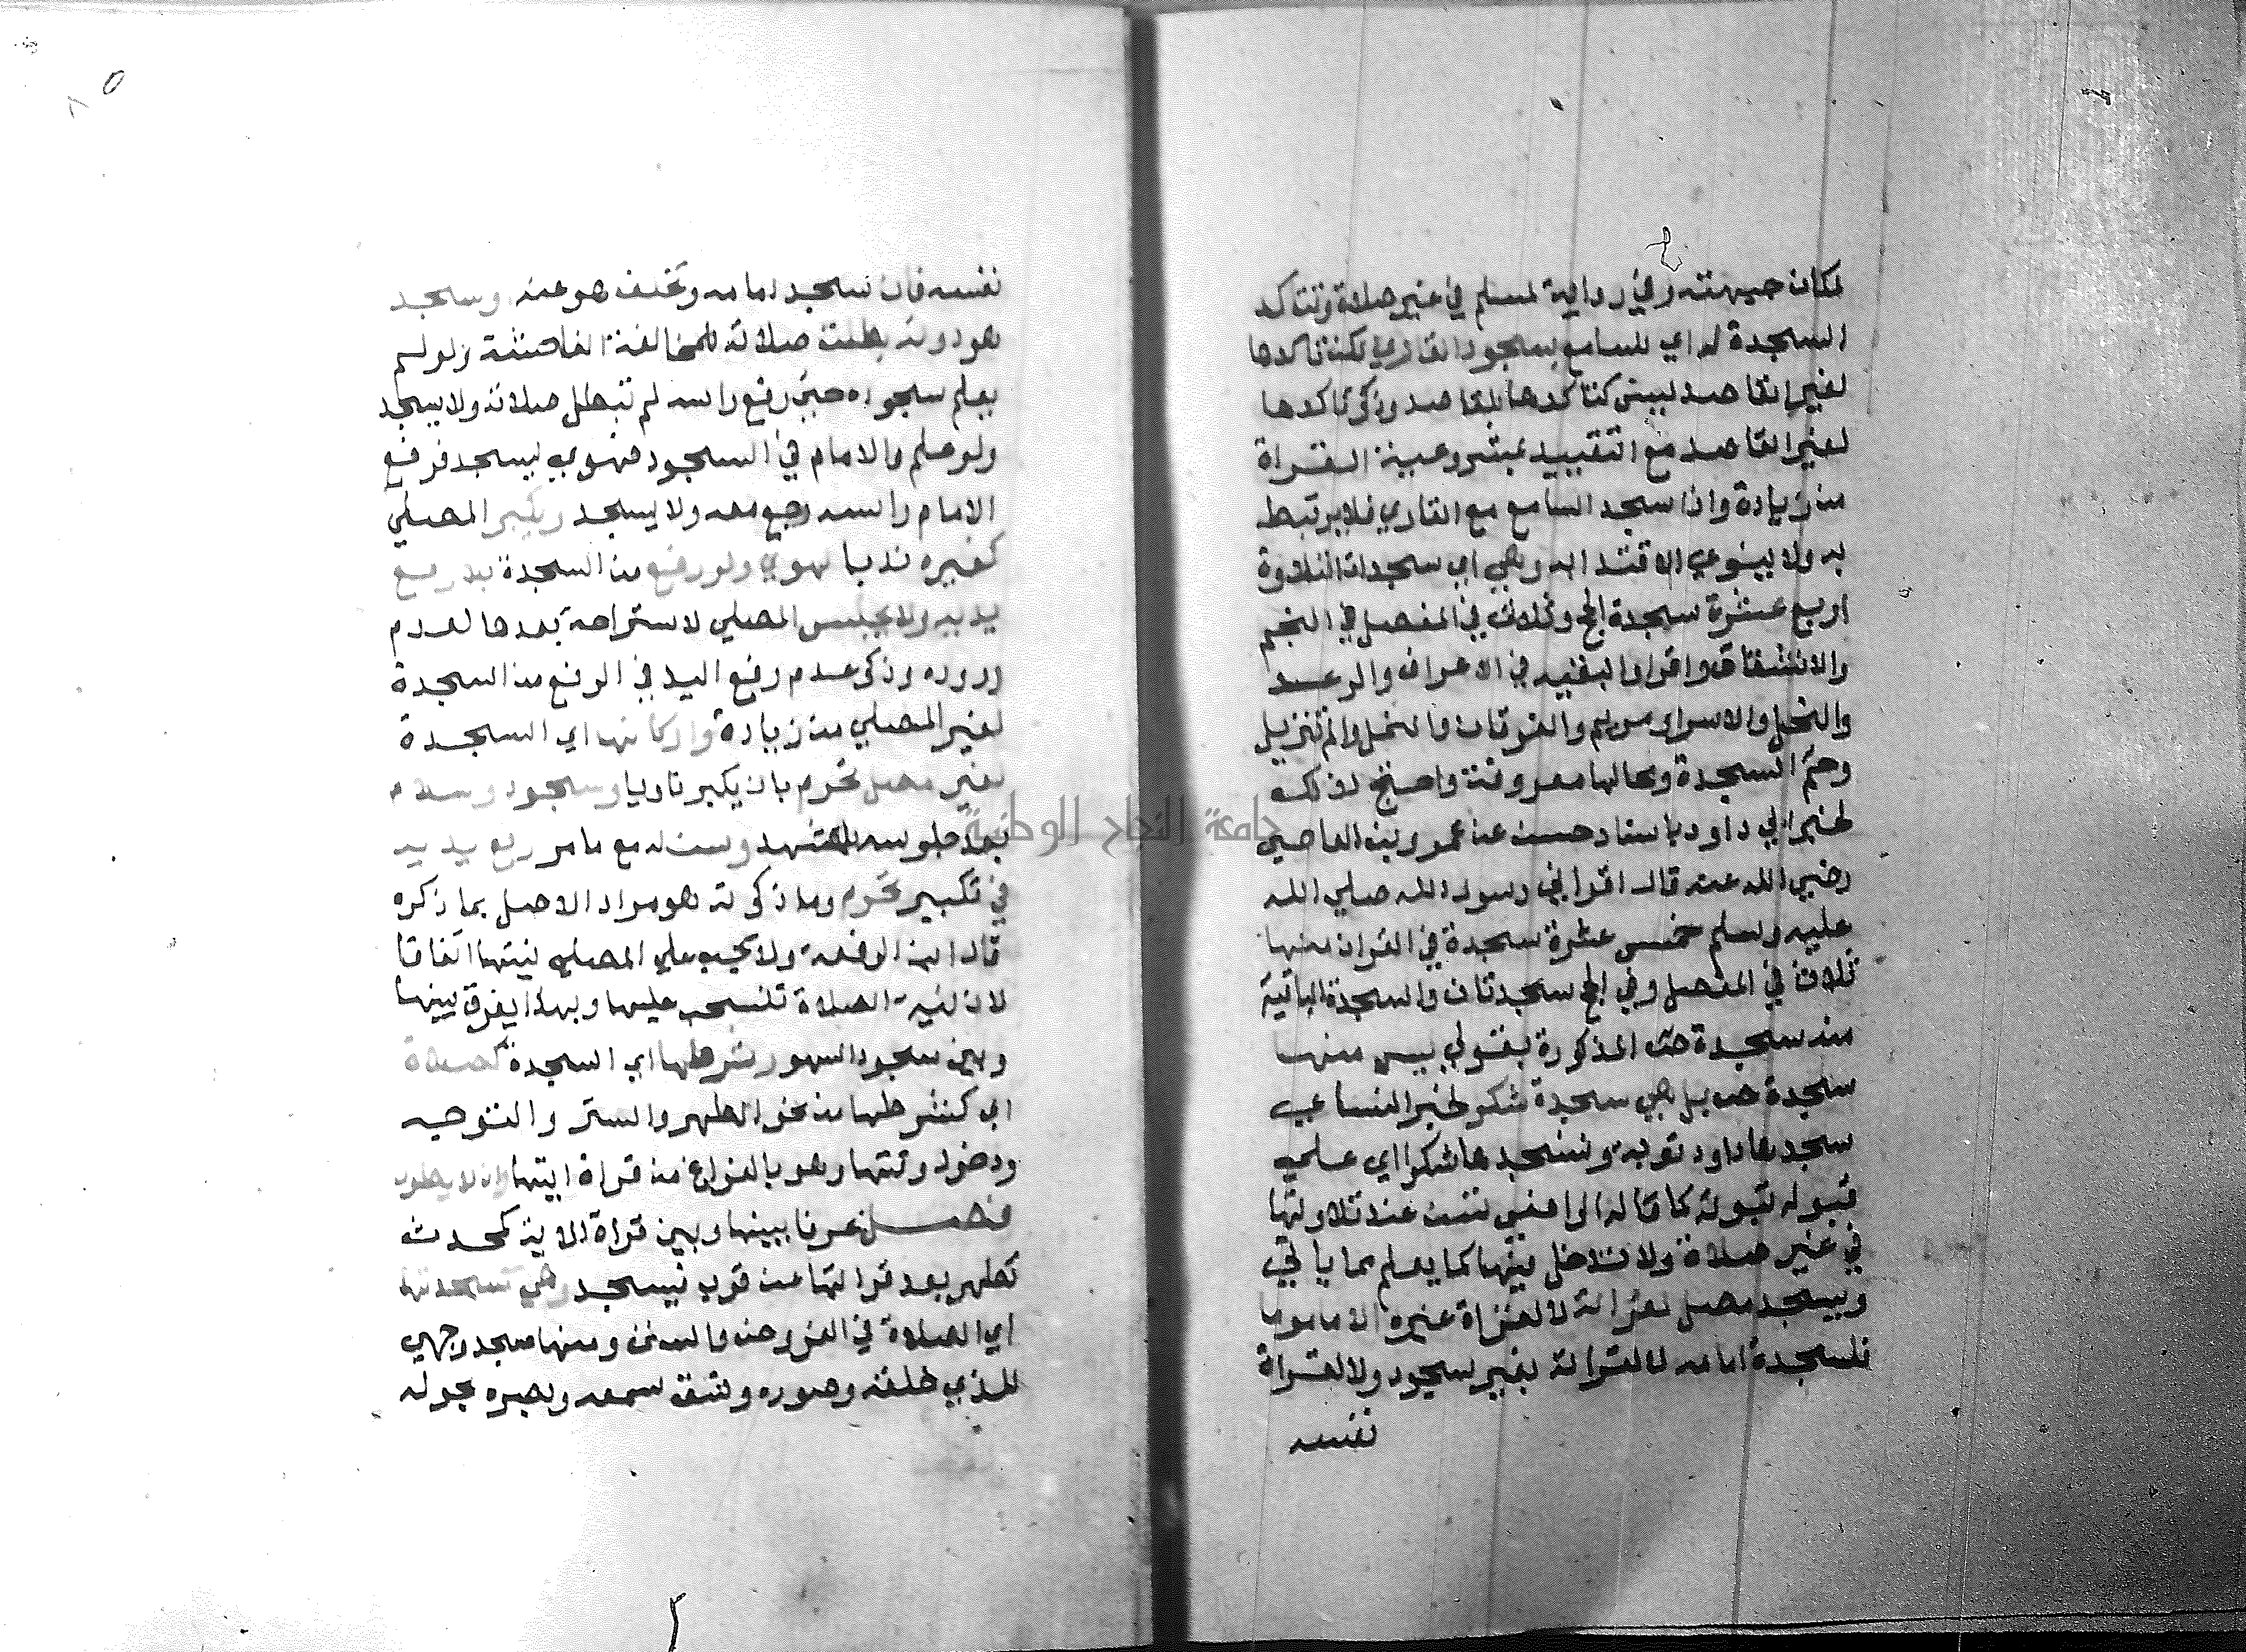 مكان جبهته وفي رواية لمسلم في غير صلاة وتتاكد
السجدة له اي للسامع بسجود القاري لكن تاكدها
لغير القاصد ليس كتاكدها للقاصد وذكر تاكدها
لغير القاصد مع التقييد بمشروعية القراة
من زيادة واذا سجد السامع مع القاري فلا يرتبط
به ولا ينوي الاقتداء به وهي اي سجدات التلاوة
اربع عشرة سجدة الحج وثلاث في المفصل في النجم
والانشقاق واقرا والبقية في الاعراف والرعد
والنحل والاسرا ومريم والفرقان والنمل والم تنزيل
وحم السجدة ومحالها معروفة واحتج لذلك
لخبر ابي داود باسناد حسن عن عمرو بن العاصي
رضي الله عنه قال اقراني رسول الله صلي الله
عليه وسلم خمس عشرة سجدة في القران منها
ثلاث في المفصل وفي الحج سجدتان والسجدة الباقية
منه سجدة ص المذكورة بقولي ليس منها
سجدة ص بل هي سجدة شكر لخبر النساءي
سجدها داود توبة ونسجدها شكرا اي علي
قبوله توبته كما قاله الرافعي تسن عند تلاوتها
في غير صلاة ولا تدخل فيها كما يعلم مما ياتي
ويسجد مصل لقراته لا لقراة غيره الا ماموما
فلسجدة امامه لا لقراته بغير سجود ولا لقراة
نفسه
نفسه فان سجد امامه وتخلف هو عنه او سجد
هو دونه بطلت صلاته للمخالفة الفاحشة ولو لم
يعلم سجوده حتي رفع راسه لم تبطل صلاته ولا يسجد
ولو علم والامام في السجود فهوي ليسجد فرفع
الامام راسه رجع معه ولا يسجد ويكبر المصلي
كغيره ندبا لهوي ولرفع من السجدة بلا رفع
يديه ولا يجلس المصلي لاستراحة بعدها لعدم
وروده وذكر عدم رفع اليد في الرفع من السجدة
لغير المصلي من زيادة واركانها اي السجدة
لغير مصل تحرم بان يكبر ناويا وسجود وسلام
بعد جلوسه بلا تشهد وسن له مع ما مر رفع يديه
في تكبير تحرم وما ذكرته هو مراد الاصل بما ذكره
قال ابن الرفعة ولا يجب علي المصلي نيتها اتفاقا
لان نية الصلاة تنسحب عليها وبهذا يفرق بينها
وبين سجود السهو وشرطها اي السجدة كصلاة
اي كشرطها من نحو الطهر والستر والتوجه
ودخول وقتها وهو بالفراغ من قراة ايتها وان لا يطول
فصل عرفا بينها وبين قراة الاية كمحدث
تطهر بعد قراتها عن قرب فيسجد وهي كسجدتها
اي الصلاة في الفروض والسنن ومنها سجد وجهي
للذي خلقه وصوره وشق سمعه وبصره بحوله
جامعة النجاح الوطنية